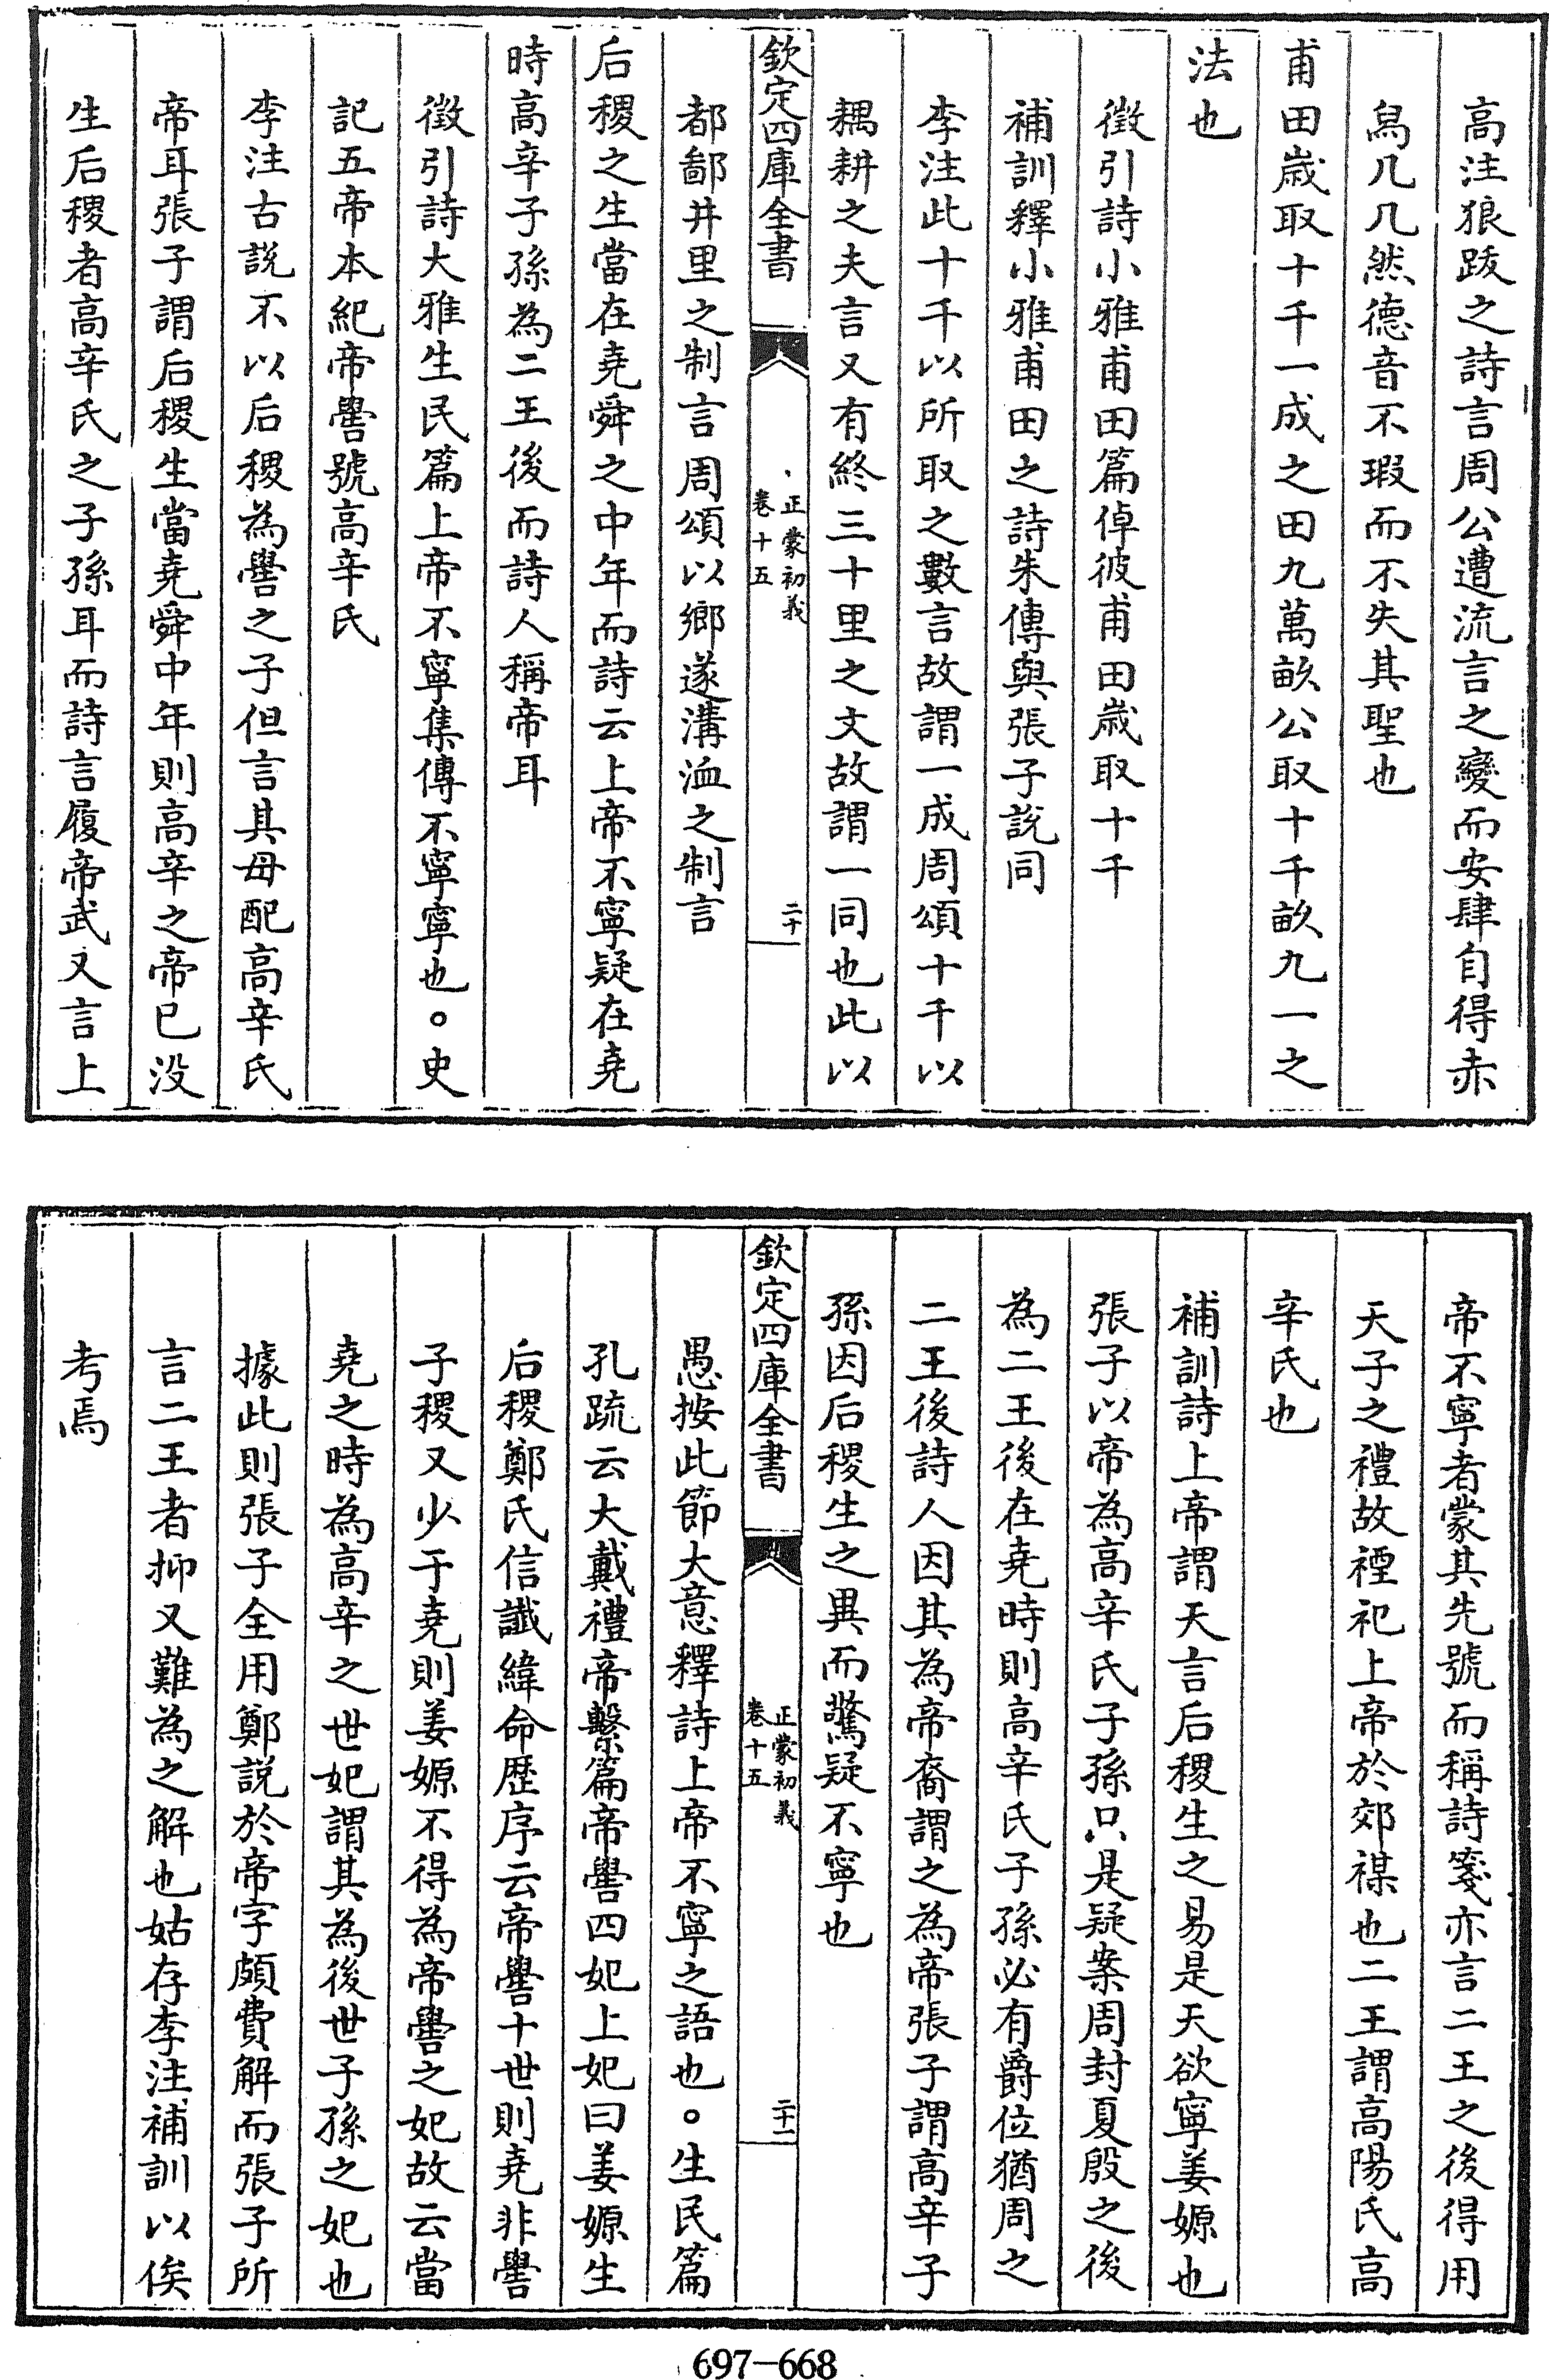 高注狼跋之詩言周公遭流言之變而安肆自得赤
舄几几然德音不瑕而不失其聖也
甫田歲取十千一成之田九萬畝公取十千畝九一之
法也
徵引詩小雅甫田篇倬彼甫田歲取十千
補訓釋小雅甫田之詩朱傳與張子說同
李注此十千以所取之數言故謂一成周頌十千以
耦耕之夫言又有終三十里之文故謂一同也此以
欽定四庫全書
正蒙初義
卷十五
二十
都鄙井里之制言周頌以鄉遂溝洫之制言
后稷之生當在堯舜之中年而詩云上帝不寧疑在堯
時高辛子孫為二王後而詩人稱帝耳
徵引詩大雅生民篇上帝不寧集傳不寧寧也。史
記五帝本紀帝嚳號高辛氏
李注古說不以后稷為嚳之子但言其母配高辛氏
帝耳張子謂后稷生當堯舜中年則高辛之帝已沒
生后稷者高辛氏之子孫耳而詩言履帝武又言上
帝不寧者蒙其先號而稱詩箋亦言二王之後得用
天子之禮故禋祀上帝於郊禖也二王謂高陽氏高
辛氏也
補訓詩上帝謂天言后稷生之易是天欲寧姜嫄也
張子以帝為高辛氏子孫只是疑案周封夏殷之後
為二王後在堯時則高辛氏子孫必有爵位猶周之
二王後詩人因其為帝裔謂之為帝張子謂高辛子
孫因后稷生之異而驚疑不寧也
欽定四庫全書
正蒙初義
卷十五
二十一
愚按此節大意釋詩上帝不寧之語也。生民篇
孔疏云大戴禮帝繫篇帝嚳四妃上妃曰姜嫄生
后稷鄭氏信讖緯命歷序云帝嚳十世則堯非嚳
子稷又少于堯則姜嫄不得為帝嚳之妃故云當
堯之時為高辛之世妃謂其為後世子孫之妃也
據此則張子全用鄭說於帝字頗費解而張子所
言二王者抑又難為之解也姑存李注補訓以俟
考焉
697-668